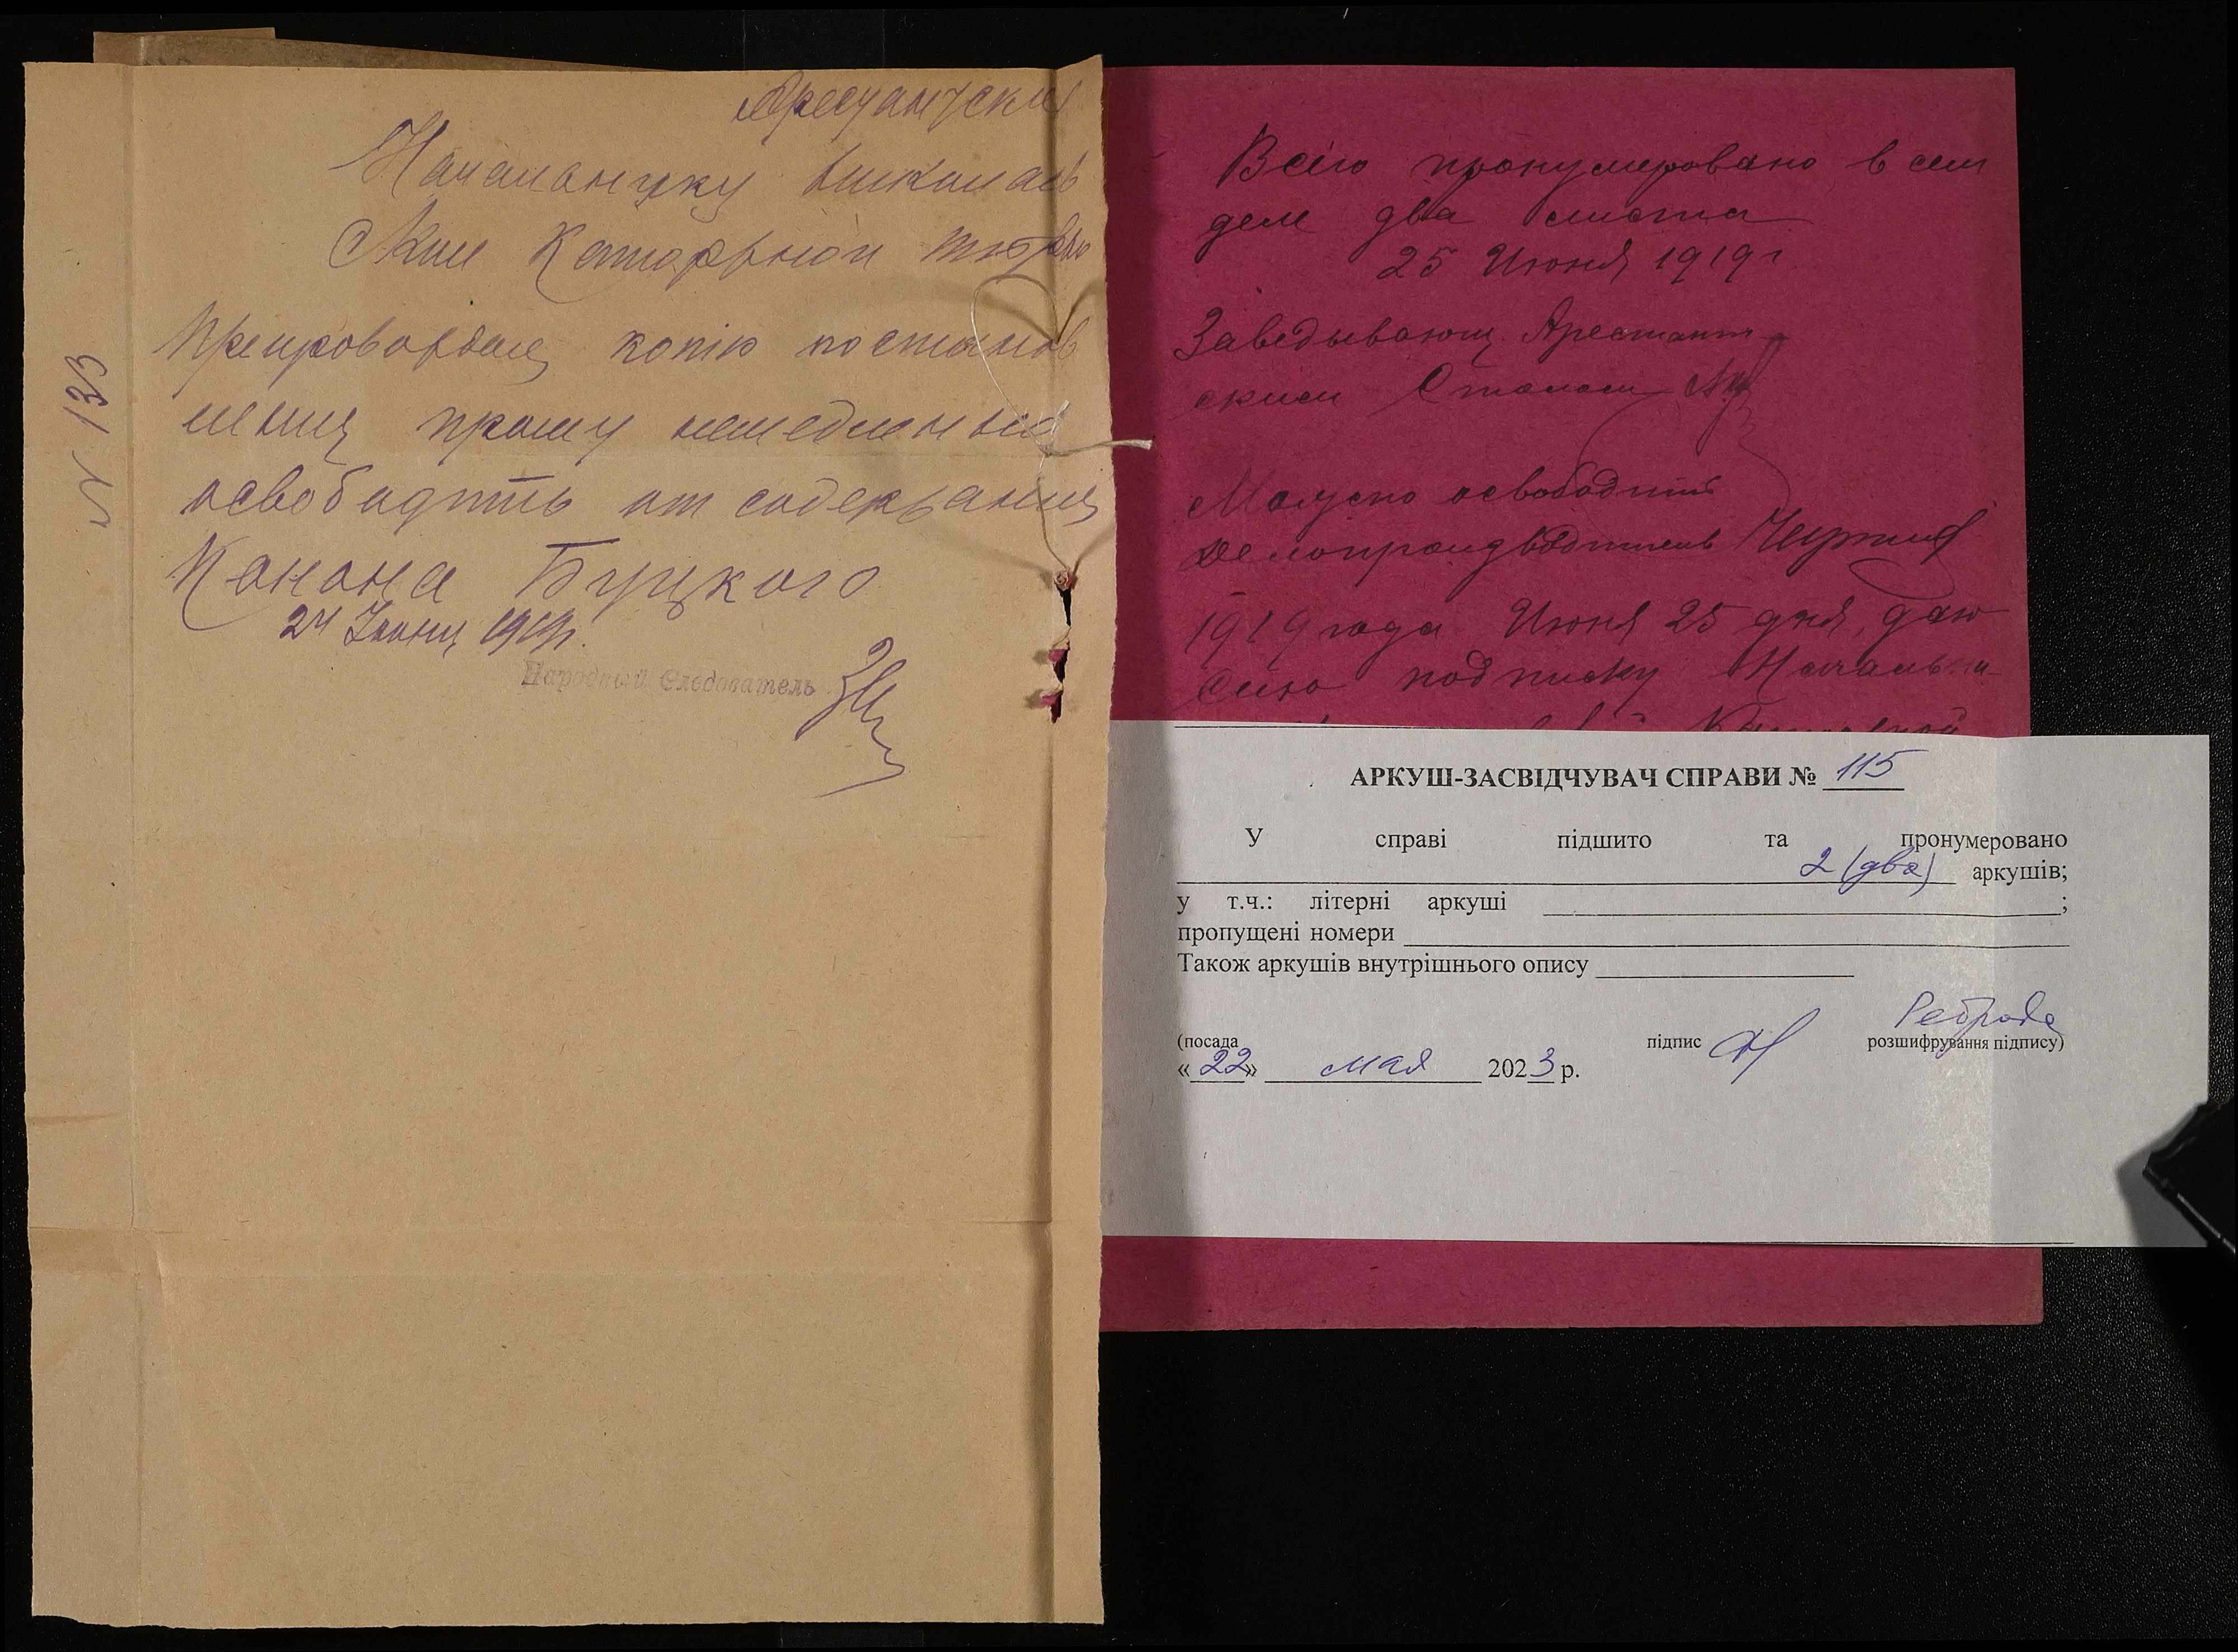 Арестантский
Начальнику Николаев
ской Каторжной тюрьм
Препровождая копию постанов
ления прошу немедленно
освободить от содержания
Канона Буцкого
24 Июня 1919г.
Народный Следователь
№ 133
Всего пронумеровано в сем
деле два листа
25 Июня 1919 г
Заведывающ. Арестант
ским Столом
Можно освободить
Делопроизводитель
1919 года Июня 25 дня, даю
сию подписку Начальни
Каторжной
АРКУШ-ЗАСВІДЧУВАЧ СПРАВИ № 115
У справі підшито та пронумеровано
2 (два) аркушів;
у т.ч.: літерні аркуші ;
пропущені номери
Також аркушів внутрішнього опису
(посада підпис розшифрування підпису)
«22» мая 2023 р.